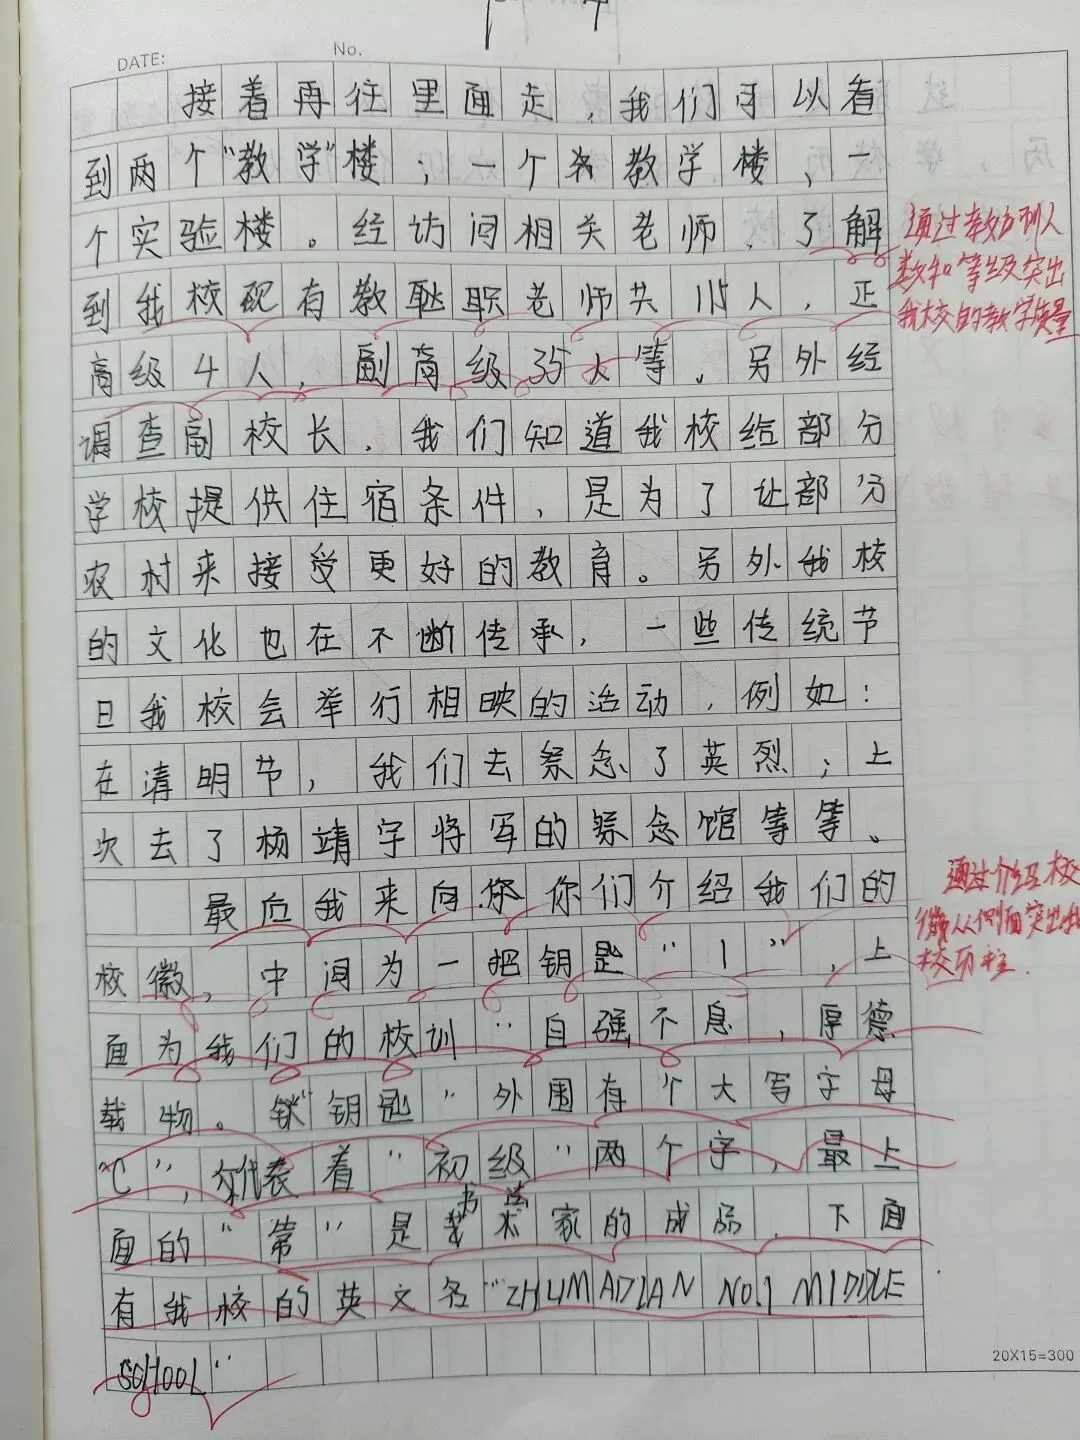 DATE:
No.
接着再往里面走，我们可以看
到两个“教学”楼；一个为教学楼，一
个实验楼。经访问相关老师，了解
通过教师人
到我校现有教耻职老师共115人，正
数和等级突出
我校的教学质量
高级4人，副高级35人等。另外经
调查副校长，我们知道我校给部分
学校提供住宿条件，是为了让部分
农村来接受更好的教育。另外我校
的文化也在不断传承，一些传统节
日我校会举行相映的活动，例如：
在清明节，我们去祭念了英烈；上
次去了杨靖宇将军的祭念馆等等。
最后我来向您你们介绍我们的
通过介绍校
徽从侧面突出我
校历程.
校徽，中间为一把钥匙“1”，上
面为我们的校训“自强不息，厚德
载物。锁“钥匙”外围有个大写字母
“C”，代表着“初级”两个字，最上
书法
面的“第”是艺术家的成品，下面
有我校的英文名“ZHUMADIAN NO.1 MIDDLE
SCHOOL”
20X15=300